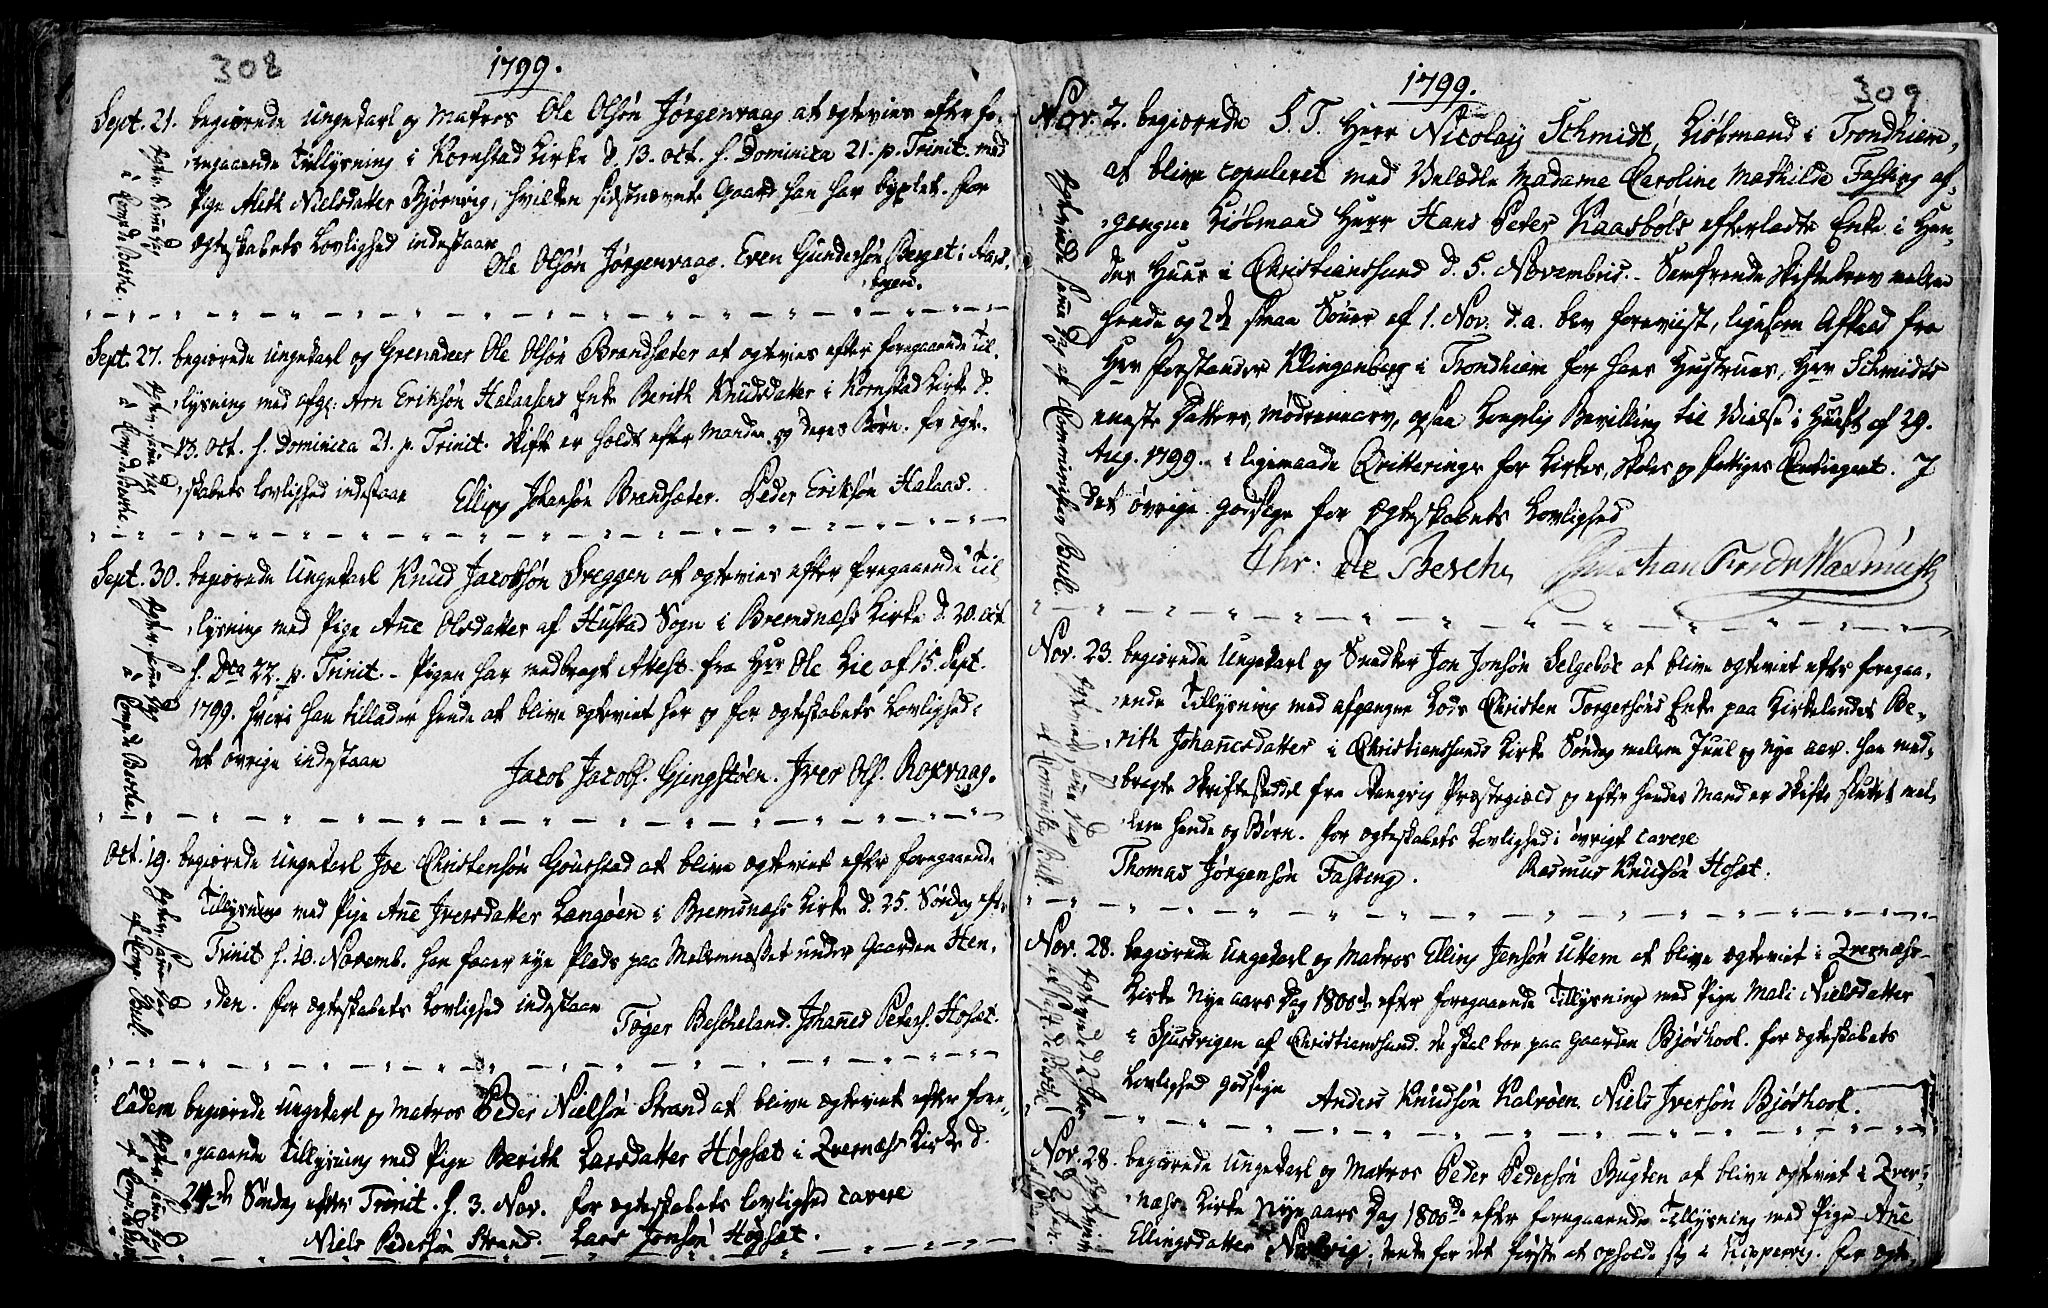 308
1799.
Sept. 21. begiærede Ungekarl og Matros Ole Olsøn Jørgenvaag at ægtevies efter fo-
regaaende Tillysning i Kornstad Kirke d. 13. Oct. s. Dominica 21. p. Trinit. med
Pige Aleth Nielsdatter Bjørnvig, hvilken sidstnævnte Gaard han har byxlet. For
Ægteskabets Lovlighed indestaae
Ole Olsøn Jørgenvaag. Even Gundersøn Berget i
Ægtev. samme Dag
à Comp. de Besche.
Sept. 27. begiærede Ungekarl og Grenadeer Ole Olsøn Brandsæter at ægtevies efter foregaaende Til-
lysning med afg: Arn Eriksøn Halaasens Enke Berith Knudsdatter i Kornstad Kirke d.
13. Oct. s. Dominica 21. p. Trinit. Skifte er holdt efter Manden og deres Børn. For Ægte-
skabets Lovlighed indestaae
Elling Johansøn Brandsæter. Peder Eriksøn Halaas.
Ægtev. samme Dag
à Comp. de Besche.
Sept. 30. begiærede Ungekarl Knud Jacobsøn Sreggen at ægtevies efter foregaaende Til-
lysning med Pige Ane Olsdatter af Hustad Sogn i Bremsnæss Kirke d. 20. Oct.
s. Dca 22. p. Trinit. – Pigen har medbragt Attest fra Hr Ole Lie af 15. Sept.
1799. hvori han tillader hende at blive ægteviet her og for Ægteskabets Lovlighed i
det øvrige indestaae
Jacob Jacobs. Gjengstøen. Iver Ols. Roxvaag.
Ægtev. samme Dag
à Comp. de Besche.
Oct. 19. begiærede Ungekarl Joe Christensøn Gourstad at blive ægteviet efter foregaaende
Tillysning med Pige Ane Iversdatter Langøen i Bremsnæss Kirke d. 25. Søndag efter
Trinit. s. 10. Novemb. Han faaer nye Plads paa Mellemnæsset under Gaarden Hen-
den. For Ægteskabets Lovlighed indestaae
Tøger Bescheland. Johannes Peters. Hosæt.
Ægtev. samme Dag
af Comp. Bull.
Eadem begiærede Ungekarl og Matros Peder Nielsøn Strand at blive ægteviet efter fore-
gaaende Tillysning med Pige Berith Larsdatter Høgsæt i Qvernæss Kirke d.
24de Søndag efter Trinit. s. 3. Nov. For Ægteskabets Lovlighed cavere
Niels Pedersøn Strand. Lars Jonsøn Høgsæt.
Ægtev. samme Dag
309
1799.
Nov. 2. begiærede S. T. Herr Nicolay Schmidt, Kiøbmand i Trondhiem,
at blive copuleret med Velædle Madame Caroline Mathilde Fasting af-
gangne Kiøbmand Herr Hans Peter Kaasbøls efterladte Enke i Hen-
des Huus i Christianssund d. 5. Novembris. – Samfrende Skiftebrev mellem
hende og 2de smaa Sønner af 1. Nov. d. a. blev foreviist, ligesom Afkald fra
Herr Forstander Klingenberg i Trondhiem for hans Hustrues, Herr Schmidts
eneste Datters, Mødrenearv, ogsaa Kongelig Bevilling til Vielse i Huuset af 29.
Aug. 1799. i ligemaade Qvitteringer for Kirkes, Skoles og Fattiges Contingent. I
det øvrige godsige for Ægteskabets Lovlighed
Chr. De Besche, Christian Fredr Wasmuth
Ægteviede samme Dag af Comminister Bull.
Nov. 23. begiærede Ungekarl og Snedker Jon Jonsøn Selgebøe at blive ægteviet efter foregaa-
ende Tillysning med afgangne Lods Christen Torgersøns Enke paa Kirkelandet Be-
rith Johannesdatter i Christianssunds Kirke Søndag mellem Juul og Nye aar. Han med-
bragte Skriftesæddel fra Stangvig Præstegiæld og efter hendes Mand er Skifte sluttet mel-
lem hende og Børn. For Ægteskabets Lovlighed i øvrigt cavere
Thomas Jørgensøn Fasting. Rasmus Knudsøn Hosæt.
Nov. 28. begiærede Ungekarl og Matros Elling Jensøn Uttem at blive ægteviet i Qvernæss
Kirke Nye aars Dag 1800de efter foregaaende Tillysning med Pige Mali Nielsdatter
i Sjursvigen af Christianssund. De skal boe paa Gaarden Bjøshool. For Ægteskabets
Lovlighed godsige
Anders Knudsøn Kalvøen. Niels Iversøn Bjøshool.
Nov. 28. begiærede Ungekarl og Matros Peder Pedersøn Bugten at blive ægteviet i Qver-
næss Kirke Nye aars Dag 1800de efter foregaaende Tillysning med Pige Ane
Ellingsdatter, tænker for det første at opholde sig i Kippervig. For Ægte-